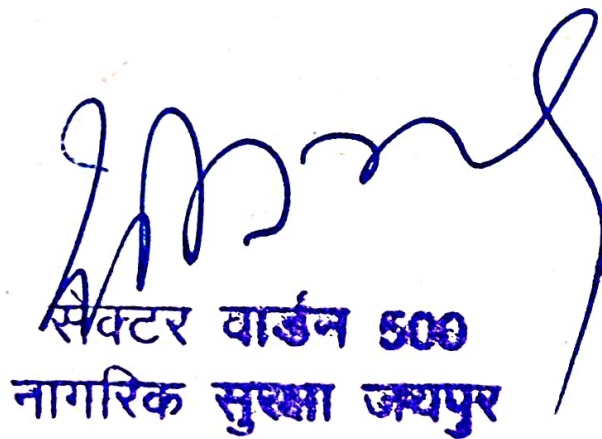 सैक्टर वार्डन 500
नागरिक सुरक्षा जयपुर